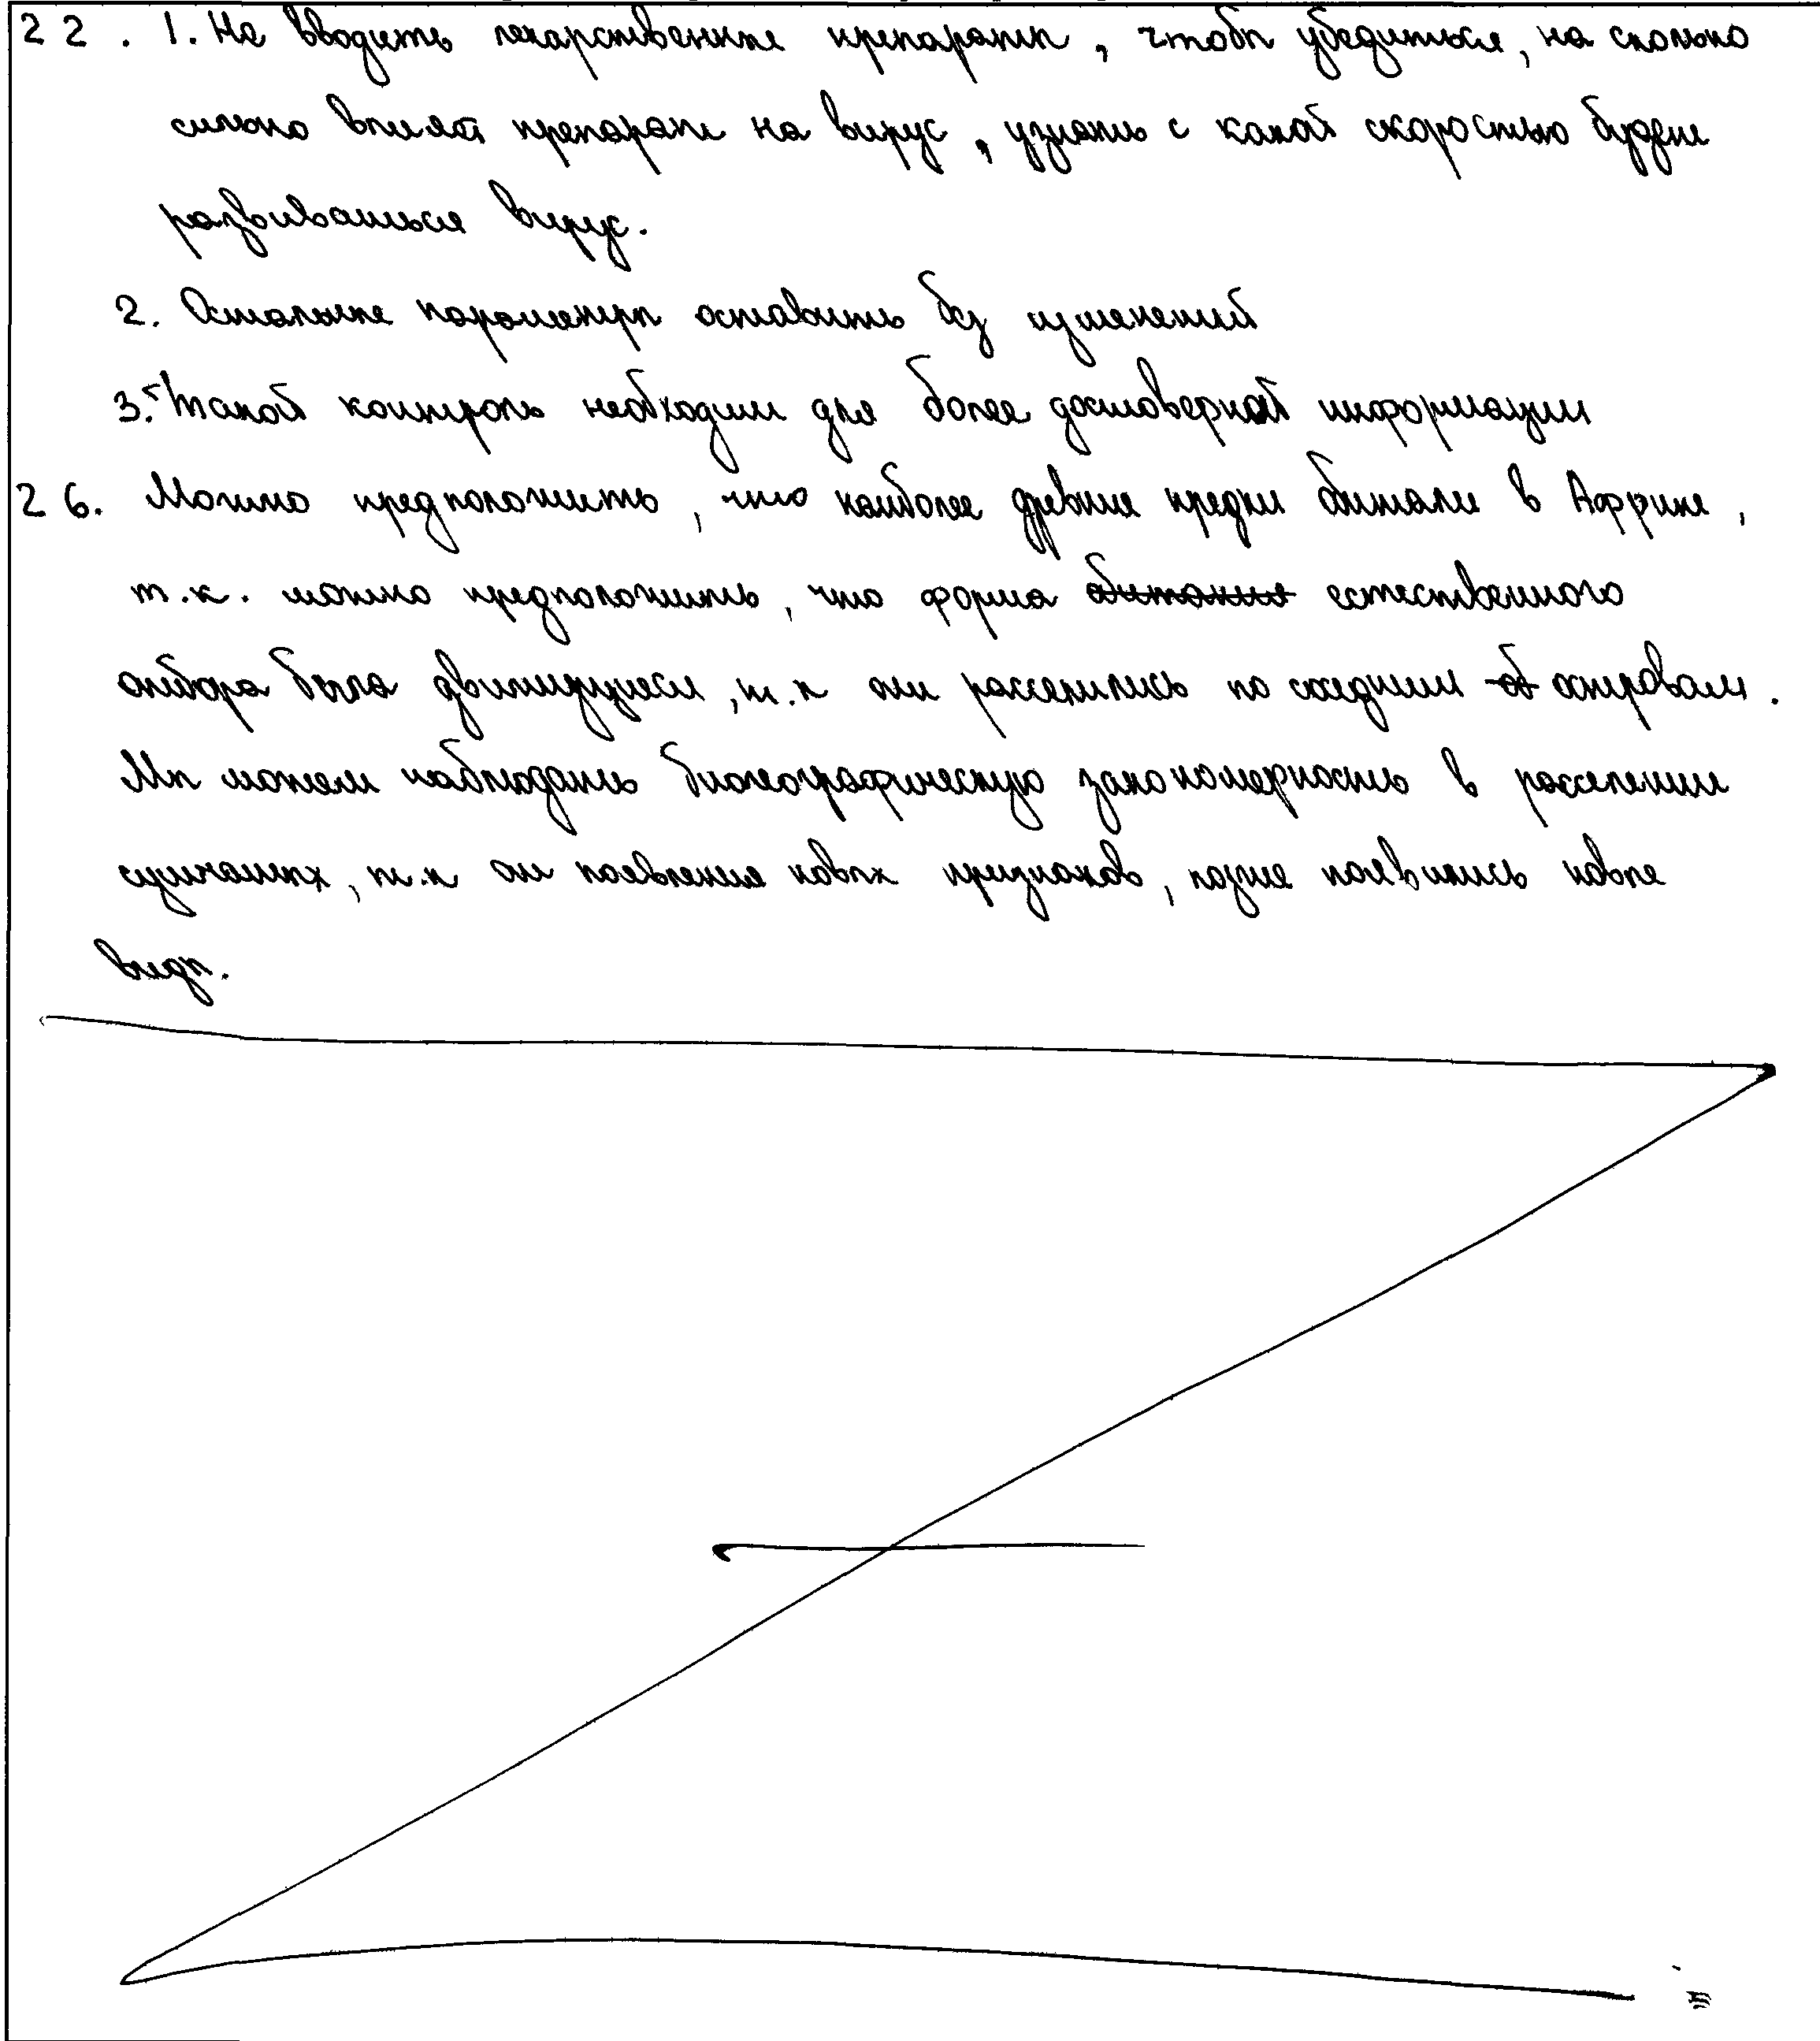 22. 1. Не вводить лекарственные препараты, чтобы убедиться, на сколько
сильно влияет препарат на вирус, узнать с какой скоростью будет
развиваться вирус.
2. Остальные параметры оставить без изменений
3. Такой контроль необходим для более достоверной информации
26. Можно предположить, что наиболее древние предки обитали в Африке,
т.к. можно предположить, что форма обитания естественного
отбора была движущуюся, т.к они расселились по соседним об островам.
Мы можем наблюдать биогеографическую закономерность в расселении
сумчатых, т.к от появление новых признаков, позже появились новые
виды.